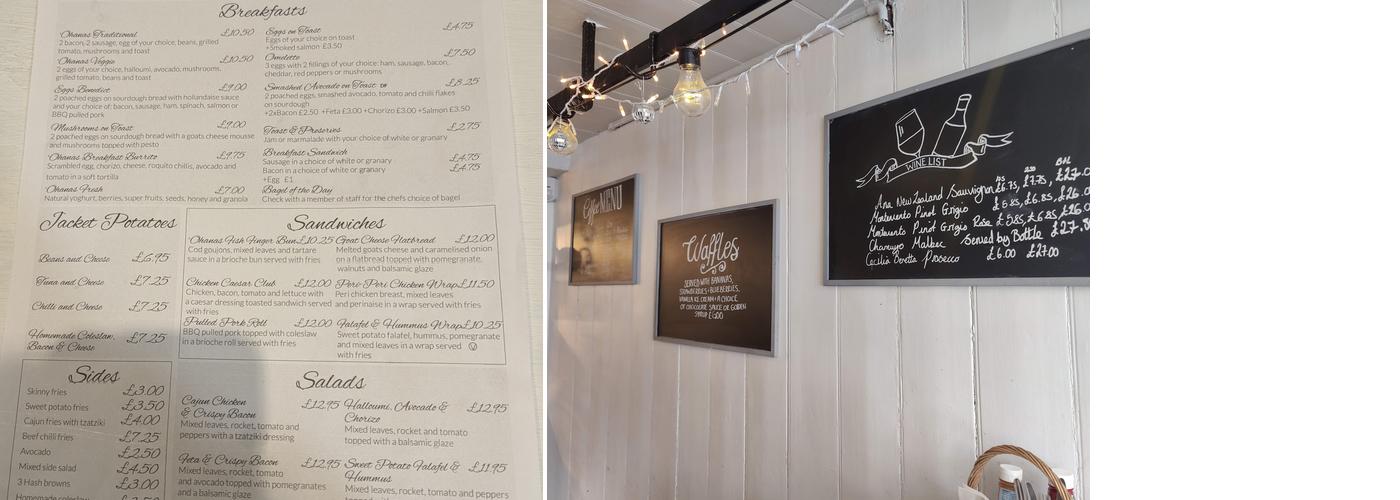 Breakfasts
Ohanas Traditional £10.50
2 bacon, 2 sausage, egg of your choice, beans, grilled
tomato, mushrooms and toast
Ohanas Veggie £10.50
2 eggs of your choice, halloumi, avocado, mushrooms,
grilled tomato, beans and toast
Eggs Benedict £9.00
2 poached eggs on sourdough bread with hollandaise sauce
and your choice of: bacon, sausage, ham, spinach, salmon or
BBQ pulled pork
Mushrooms on Toast £9.00
2 poached eggs on sourdough bread with a goats cheese mousse
and mushrooms topped with pesto
Ohanas Breakfast Burrito £9.75
Scrambled egg, chorizo, cheese, roquito chillis, avocado and
tomato in a soft tortilla
Ohanas Fresh £7.00
Natural yoghurt, berries, super fruits, seeds, honey and granola
Eggs on Toast £4.75
Eggs of your choice on toast
+Smoked salmon £3.50
Omelette £7.50
3 eggs with 2 fillings of your choice: ham, sausage, bacon,
cheddar, red peppers or mushrooms
Smashed Avocado on Toast £8.25
2 poached eggs, smashed avocado, tomato and chilli flakes
on sourdough
+2xBacon £2.50 +Feta £3.00 +Chorizo £3.00 +Salmon £3.50
Toast & Preserves £2.75
Jam or marmalade with your choice of white or granary
Breakfast Sandwich
Sausage in a choice of white or granary £4.75
Bacon in a choice of white or granary £4.75
+Egg £1
Bagel of the Day
Check with a member of staff for the chefs choice of bagel
Jacket Potatoes
Beans and Cheese £6.95
Tuna and Cheese £7.25
Chilli and Cheese £7.25
Homemade Coleslaw,
Bacon & Cheese £7.25
Sandwiches
Ohanas Fish Finger Bun £10.25
Cod goujons, mixed leaves and tartare
sauce in a brioche bun served with fries
Chicken Caesar Club £12.00
Chicken, bacon, tomato and lettuce with
a caesar dressing toasted sandwich served
with fries
Pulled Pork Roll £12.00
BBQ pulled pork topped with coleslaw
in a brioche roll served with fries
Goat Cheese Flatbread £12.00
Melted goats cheese and caramelised onion
on a flatbread topped with pomegranate,
walnuts and balsamic glaze
Peri-Peri Chicken Wrap £11.50
Peri chicken breast, mixed leaves
and perinaise in a wrap served with fries
Falafel & Hummus Wrap £10.25
Sweet potato falafel, hummus, pomegranate
and mixed leaves in a wrap served
with fries
Sides
Skinny fries £3.00
Sweet potato fries £3.50
Cajun fries with tzatziki £4.00
Beef chilli fries £7.25
Avocado £2.50
Mixed side salad £4.50
3 Hash browns £3.00
Homemade coleslaw
Salads
Cajun Chicken £12.95
& Crispy Bacon
Mixed leaves, rocket, tomato and
peppers with a tzatziki dressing
Feta & Crispy Bacon £12.95
Mixed leaves, rocket, tomato
and avocado topped with pomegranates
and a balsamic glaze
Halloumi, Avocado & £12.95
Chorizo
Mixed leaves, rocket and tomato
topped with a balsamic glaze
Sweet Potato Falafel & £11.95
Hummus
Mixed leaves, rocket, tomato and peppers
Coffee MENU
Waffles
SERVED WITH BANANAS,
STRAWBERRIES + BLUEBERRIES,
VANILLA ICE CREAM + A CHOICE
OF CHOCOLATE SAUCE OR GOLDEN
SYRUP £6.00
WINE LIST
Ana New Zealand Sauvignon £6.75, £7.75, £27.0
Montevento Pinot Grigio £5.85, £6.85, £26.0
Montevento Pinot Grigio Rose £5.85 £6.85 £26.0
Chamuyo Malbec Served by Bottle £27.8
Cecilia Beretta Prosecco £6.00 £27.00